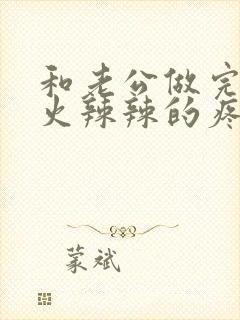 和老公做完
火辣辣的疼
蒙斌